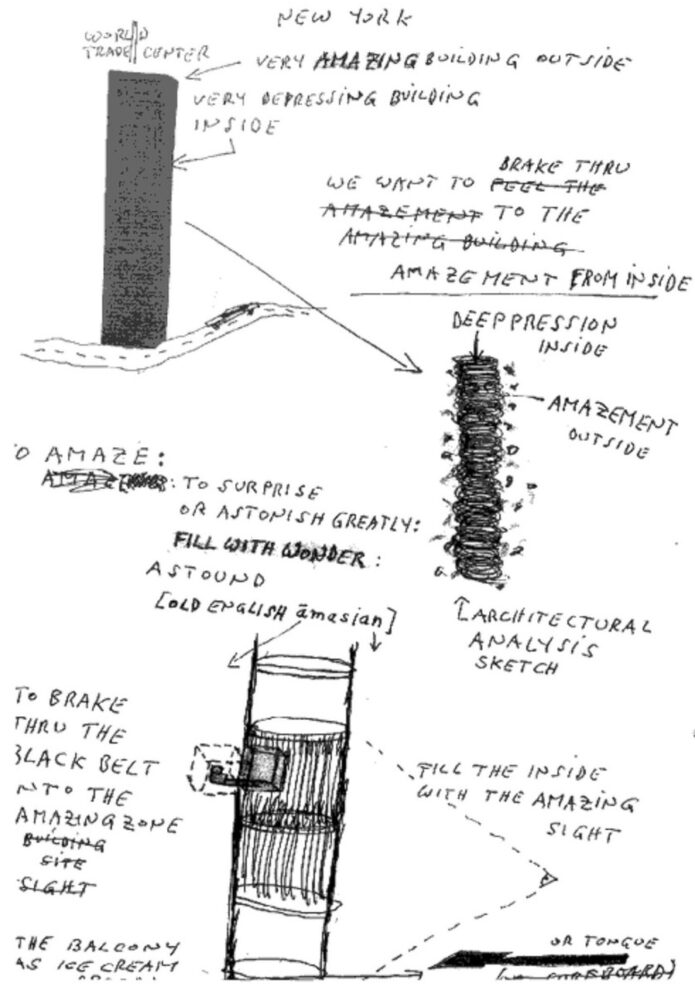 NEW YORK
WORLD
TRADE CENTER
VERY AMAZING BUILDING OUTSIDE
VERY DEPRESSING BUILDING
INSIDE
BRAKE THRU
WE WANT TO FEEL THE
AMAZEMENT TO THE
AMAZING BUILDING
AMAZEMENT FROM INSIDE
DEEPPRESSION
INSIDE
AMAZEMENT
OUTSIDE
O AMAZE:
: TO SURPRISE
OR ASTONISH GREATLY:
FILL WITH WONDER:
ASTOUND
[OLD ENGLISH āmasian]
[ARCHITECTURAL
ANALYSIS
SKETCH
TO BRAKE
THRU THE
BLACK BELT
NTO THE
AMAZING ZONE
BUILDING
SITE
SIGHT
FILL THE INSIDE
WITH THE AMAZING
SIGHT
THE BALCONY
AS ICE CREAM
OR TONGUE